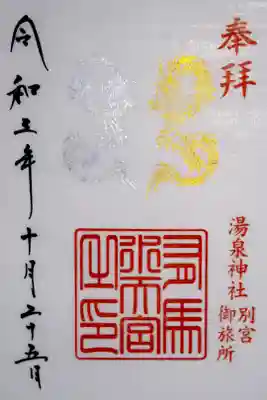 奉拝
湯泉神社
別宮
御旅所
有馬
水天宮
之印
令和五年十月二十五日